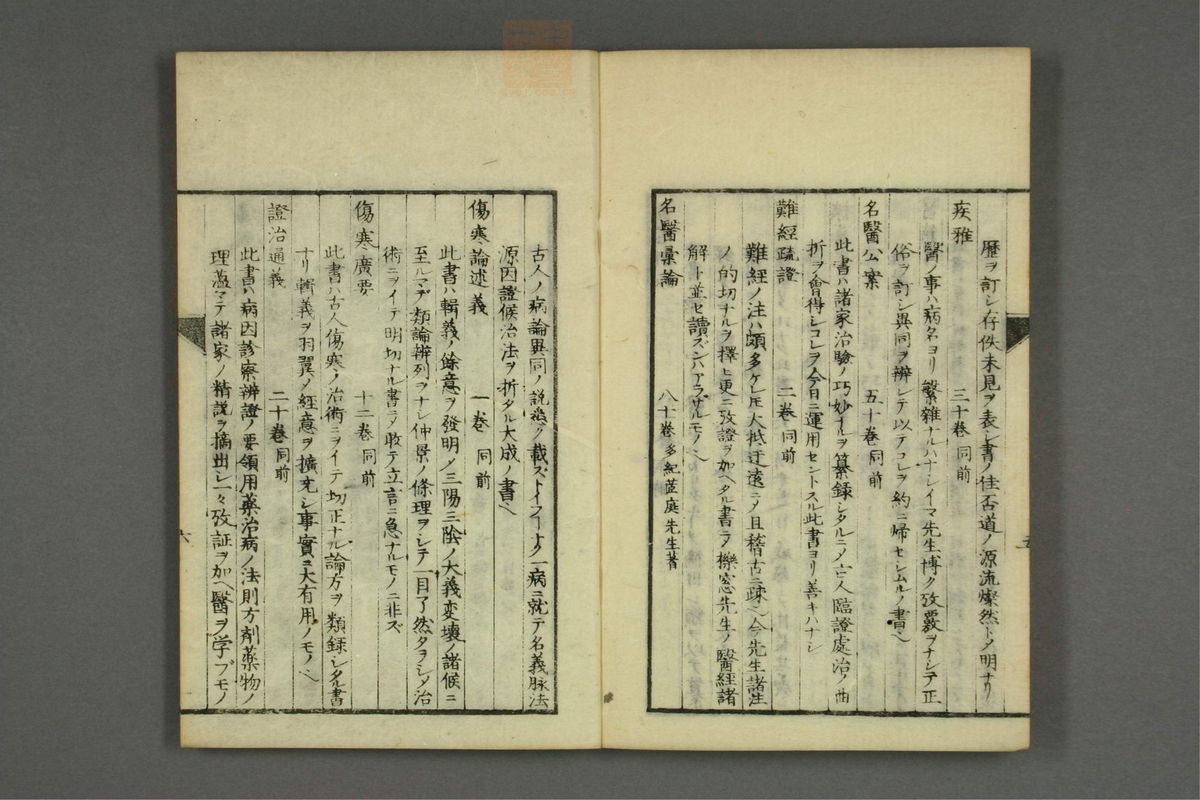 歴ヲ訂シ存佚未見ヲ表シ書ノ佳否道ノ源流燦然トメ明ナリ
疾雅　三十巻　同前
醫ノ事ハ病名ヨリ繁雜ナルハナシイマ先生博ク攷覈ヲナシテ正
俗ヲ訂シ異同ヲ辨シテ以テコレヲ約ニ歸セシムルノ書ヘ
名醫公案　五十巻　同前
此書ハ諸家治驗ノ巧妙ナルヲ纂録シタルニメ亡人臨證處治ノ曲
折ヲ會得シコレヲ今日ニ運用セントスル此書ヨリ善キハナシ
難經疏證　二巻　同前
難經ノ注ハ頗多ケレ𪜈大抵迂遠ニメ且稽古ニ疎ヘ今先生諸注
ノ的切ナルヲ擇ヒ更ニ攷證ヲ加ヘタル書ラ櫟窓先生ノ醫經諸
解ト並セ讀ズンハアラザルモノヘ
名醫彙論　八十巻　多紀茝庭先生著
古人ノ病論異同ノ説悉ク載ズトイフヿナク一病ニ就テ名義脉法
源因證候治法ヲ折タル大成ノ書ヘ
傷寒論述義　一巻　同前
此書ハ輯義ノ餘意ヲ發明メ三陽三陰ノ大義変壊ノ諸候ニ
至ルマデ類論辨列ヲナシ仲景ノ條理ヲシテ一目了然タヲシメ治
術ニヲイテ明切ナル書ラ敢テ立言ニ急ナルモノニ非ズ
傷寒廣要　十二巻　同前
此書ハ古人傷寒ノ治術ニヲイテ切正ナル論方ヲ類録シタル書
ナリ輯義ヲ羽翼メ經意ヲ擴充シ事實ニ大有用ノモノヘ
證治通義　二十巻　同前
此書ハ病因診察辨證ノ要領用藥治病ノ法則方劑藥物ノ
理蓋マテ諸家ノ精説ヲ摘出シ一々攷証ヲ加ヘ醫ヲ学ブモノ
六